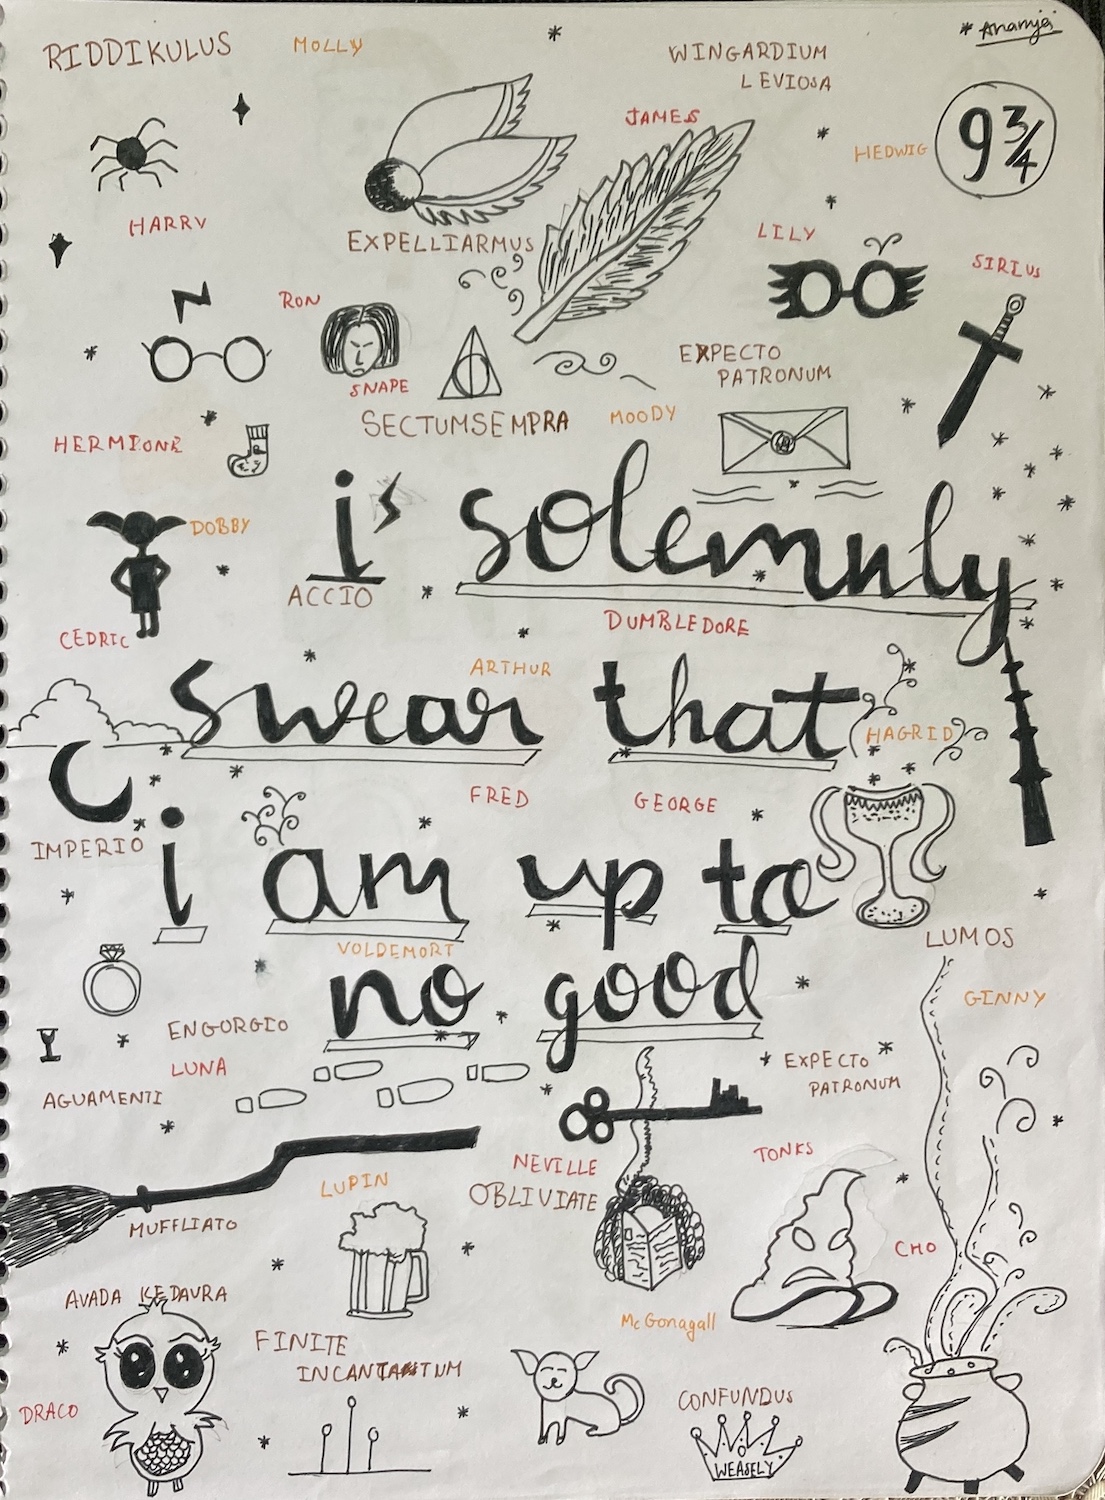 * Ananya
RIDDIKULUS
MOLLY
WINGARDIUM
LEVIOSA
JAMES
HEDWIG
9 3/4
HARRY
EXPELLIARMUS
LILY
SIRIUS
RON
SNAPE
EXPECTO
PATRONUM
SECTUMSEMPRA
MOODY
HERMIONE
DOBBY
i solemnly
ACCIO
DUMBLEDORE
CEDRIC
ARTHUR
swear that
HAGRID
FRED
GEORGE
IMPERIO
i am up to
LUMOS
VOLDEMORT
no good
GINNY
ENGORGIO
LUNA
EXPECTO
PATRONUM
AGUAMENTI
NEVILLE
TONKS
LUPIN
OBLIVIATE
MUFFLIATO
CHO
AVADA KEDAVRA
McGonagall
FINITE
INCANTANTUM
DRACO
CONFUNDUS
WEASELY